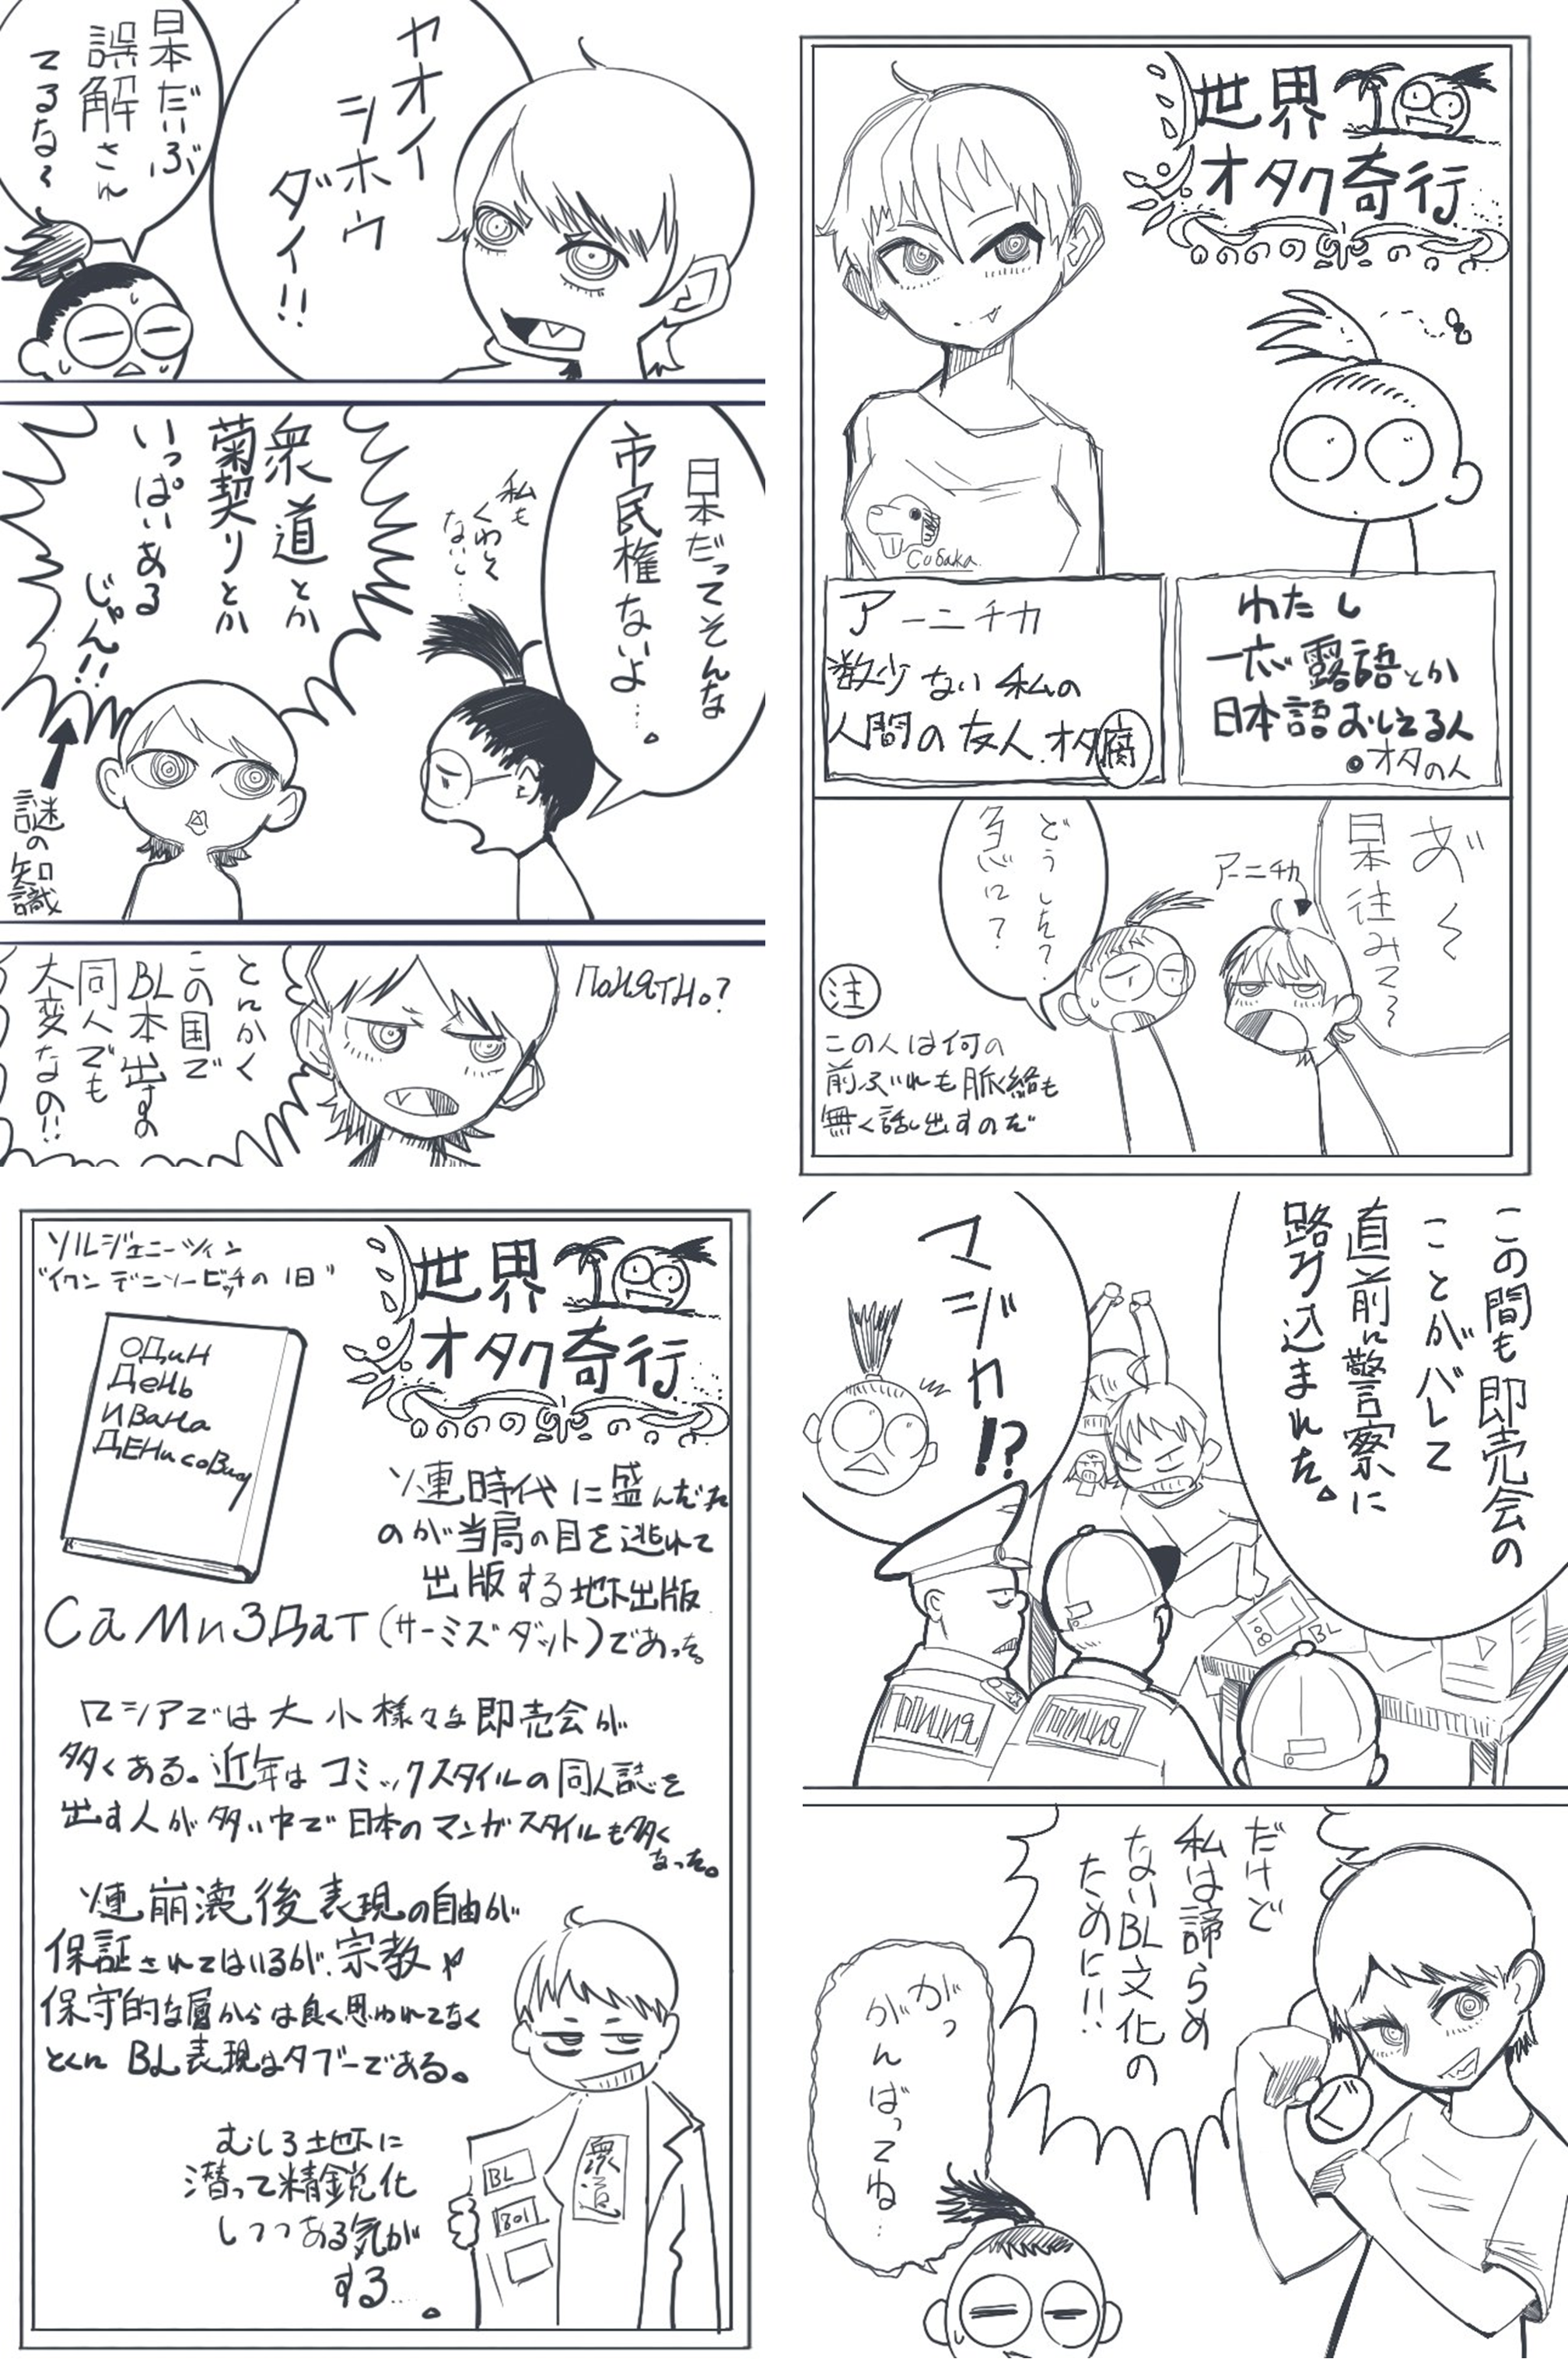 世界
オタク奇行
Собака
アーニチカ
数少ない私の
人間の友人.オタ腐
わたし
一応露語とか
日本語おしえる人
オタの人
あ゛〜
日本住みて〜
アーニチカ
どうした?
急に?
注
この人は何の
前ぶれも脈絡も
無く話し出すのだ
ヤオイ
シホウ
ダイ!!
日本だいぶ
誤解され
てるな〜
日本だってそんな
市民権ないよ…。
私も
くわしく
ないし…
衆道とか
菊契りとか
いっぱいある
じゃん!!
謎の知識
ПОНЯТНО?
とにかく
この国で
BL本出すの
同人でも
大変なの!!
この間も即売会の
ことがバレて
直前に警察に
踏み込まれた。
マジカ!?
BL
だけど
私は諦らめ
ないBL文化の
ために!!
がっ
がんばってね…
世界
オタク奇行
ソルジェニーツィン
"イワンデニソービッチの1日"
ОДИН
День
Ивана
ДЕНисович
ソ連時代に盛んだった
のが当局の目を逃れて
出版する地下出版
СаМиЗДат(サーミズダット)であった。
ロシアでは大小様々な即売会が
多くある。近年はコミックスタイルの同人誌を
出す人が多い中で日本のマンガスタイルも多く
なった。
ソ連崩壊後表現の自由が
保証されてはいるが、宗教や
保守的な層からは良く思われてなく
とくにBL表現はタブーである。
むしろ地下に
潜って精鋭化
しつつある気が
する…。
BL
801
衆道